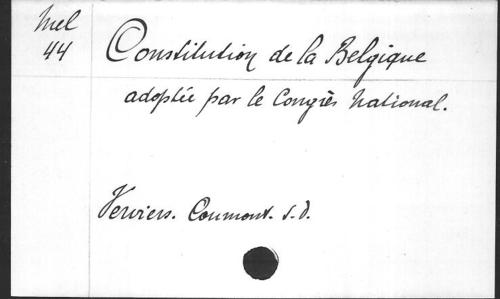 Mel
44
Constitution de la Belgique
adoptée par le Congrès National.
Verviers. Coumont. s.d.